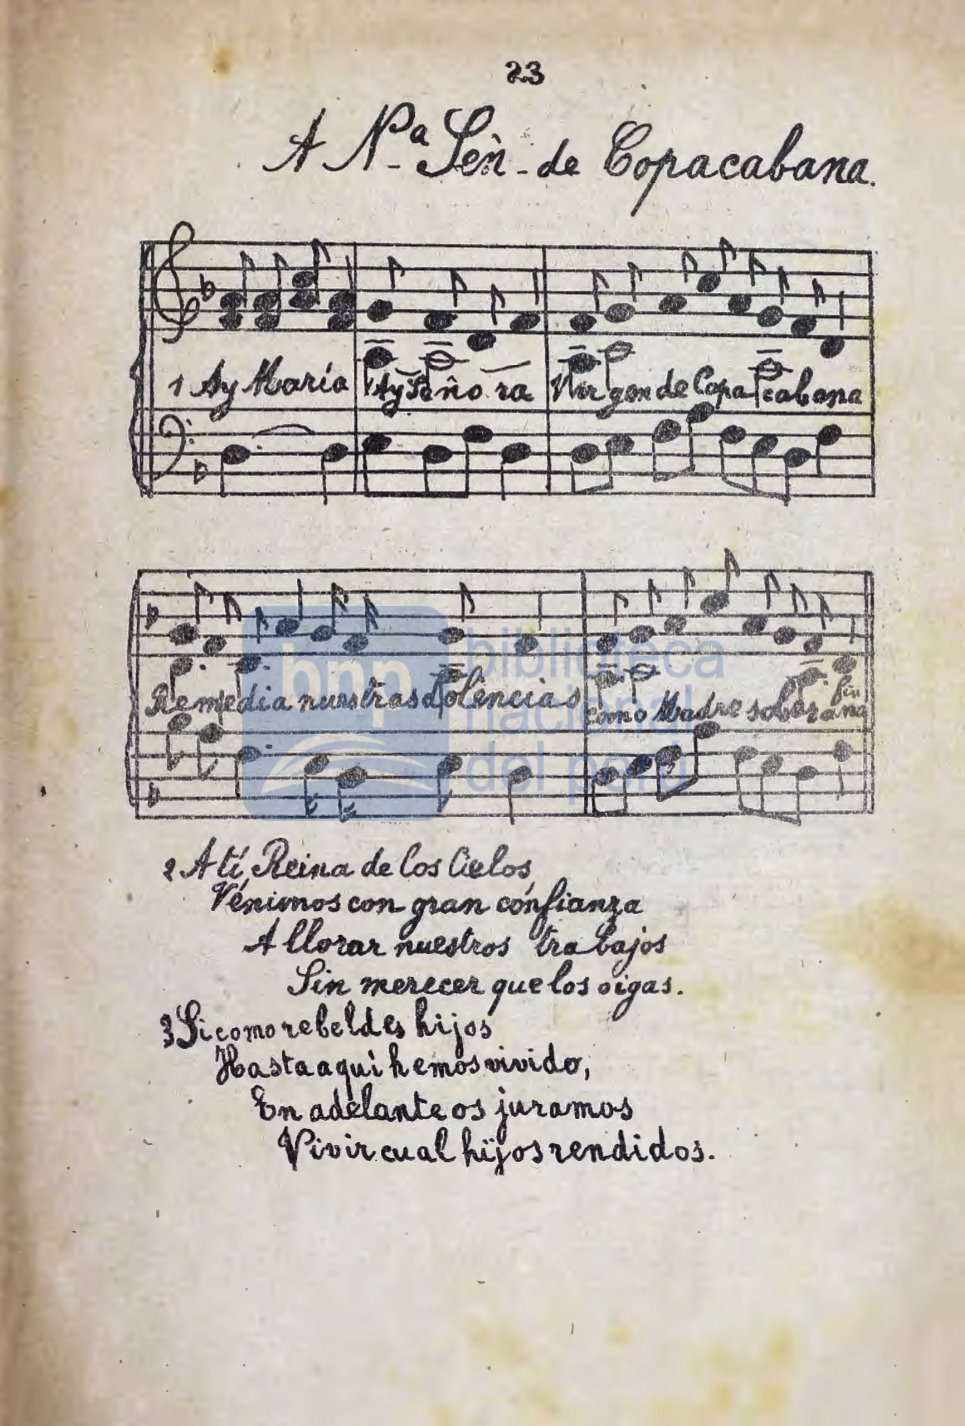 23
A N.ª Señ. de Copacabana.
1 Ay María Ay Seño ra Vir gen de Copa cabana
Remedia nuestras dolencias como Madre soberana
fin
bnp biblioteca
nacional
del perú
2 A tí Reina de los Cielos,
Vénimos con gran cónfianza
A llorar nuestros trabajos
Sin merecer que los oigas.
3 Si como rebeldes hijos
Hasta aquí hemos vivido,
En adelante os juramos
Vivir cual hijos rendidos.